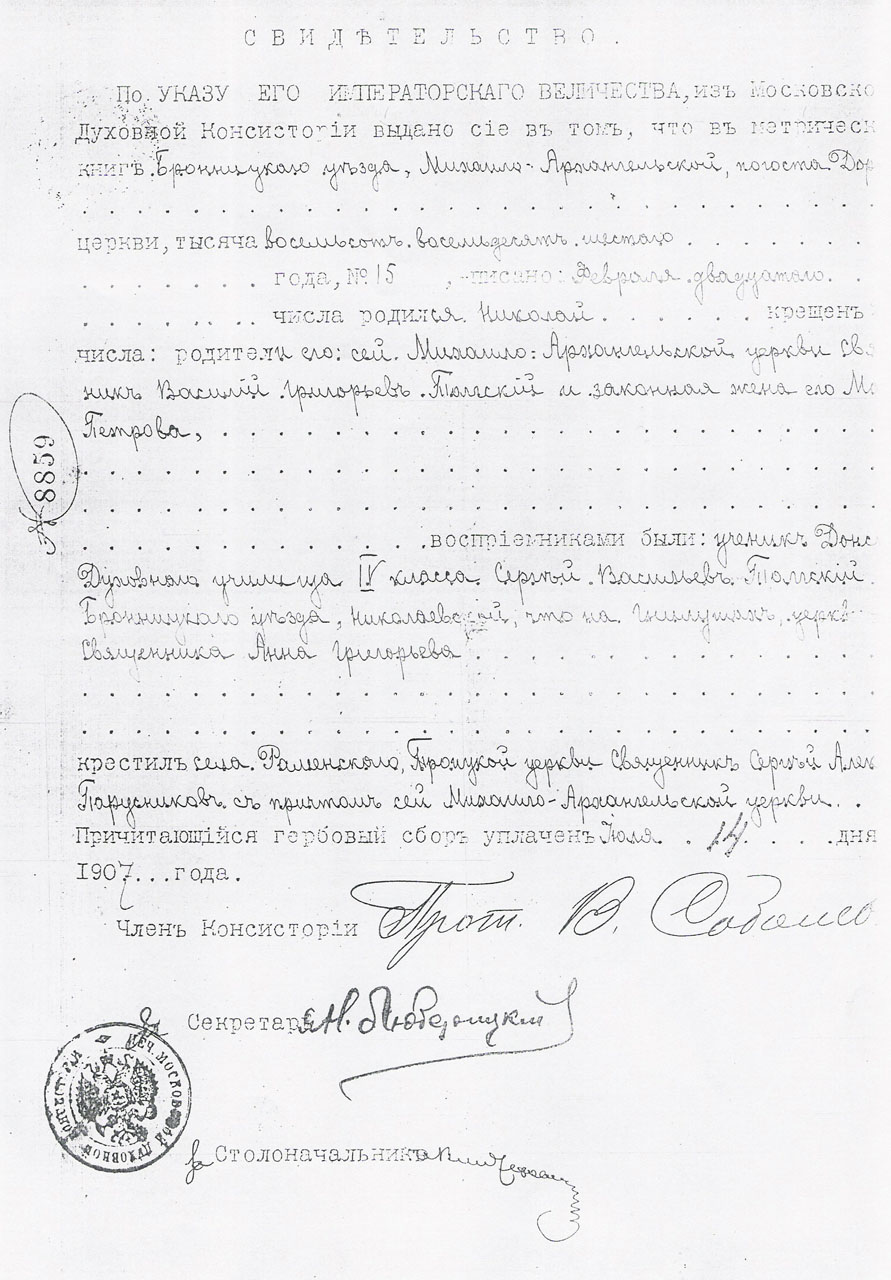 СВИДѢТЕЛЬСТВО.
По УКАЗУ ЕГО ИМПЕРАТОРСКАГО ВЕЛИЧЕСТВА, изъ Московско
Духовной Консисторіи выдано сіе въ томъ, что въ метрическ
книгѣ Бронницкаго уѣзда, Михаило-Архангельской, погоста Дор
церкви, тысяча восемьсотъ восемьдесятъ шестаго
года, № 15 , писано: Февраля двадцатаго
числа родился Николай крещенъ
числа: родители его: сей Михаило-Архангельской церкви Свя
никъ Василій Григорьевъ Толгскій и законная жена его Ма
Петрова,
№ 8859
воспріемниками были: ученикъ Донс
Духовнаго училища IV класса Сергѣй Васильевъ Толгскій
Бронницкаго уѣзда, Николаевской, что на Гнилушах, церкви
Священника Анна Григорьева
крестилъ села Раменскаго, Троицкой церкви Священникъ Сергѣй Алек
Парусниковъ съ причтомъ сей Михаило-Архангельской церкви.
Причитающійся гербовый сборъ уплаченъ Іюля 14 дня
1907 года.
Членъ Консисторіи Прот. В. Соболев
Секретарь Н. Любелицкий
ПЕЧ. МОСКОВСКОЙ ДУХОВНОЙ КОНСИСТОРІИ
Столоначальникъ